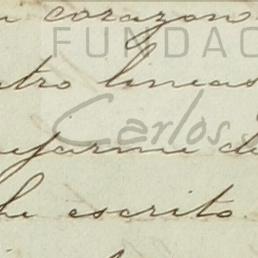 corazon
FUNDAC
tro lineas
Carlos
ejarme de
he escrito